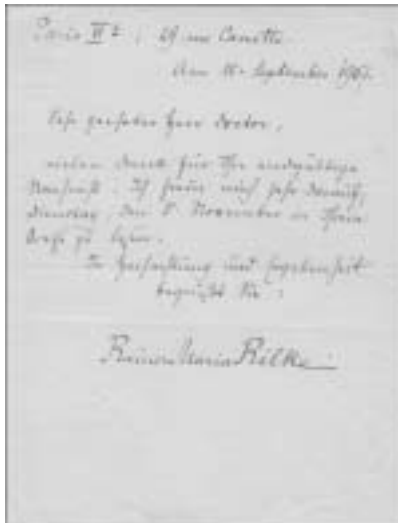 Paris VIe, 29 rue Cassette
Am 11. September 1907.
Sehr geehrter Herr Doctor,
vielen Dank für Ihre endgültige
Nachricht: Ich freue mich sehr darauf,
Dienstag, den 5. November in Ihrem
zu lesen.
In Hochachtung und Ergebenheit
begrüßt Sie:
Rainer Maria Rilke